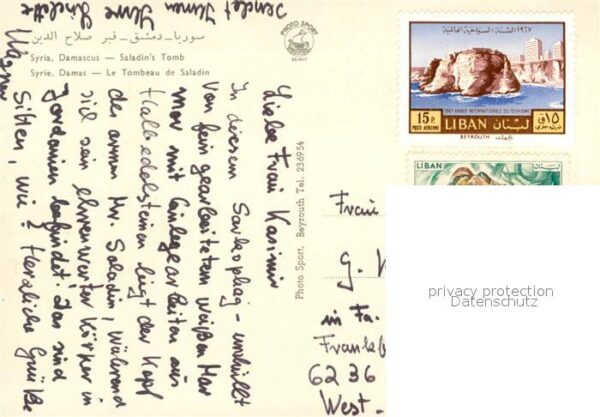 سوريا - دمشق - قبر صلاح الدين
Syria, Damascus — Saladin's Tomb
Syrie, Damas — Le Tombeau de Saladin
PHOTO SPORT
BEYRUT
Photo Sport, Beyrouth Tel. 236954
Liebe Frau Kasimir
In diesem Sarkophag - umhüllt
von fein gearbeitetem weißen Mar
mor mit Einlegearbeiten aus
Halbedelsteinen liegt der Kopf
de armen Mr. Saladin, während
sich sein ehrenwerter Körper in
Jordanien befindet. Das sind
Sitten, wie? Herzliche Grüße
sendet Ihnen Ihre
١٩٦٧ السنة السياحية العالمية
1967 ANNEE INTERNATIONALE DU TOURISME
15 P.
POSTE AERIENNE
LIBAN لبنان
ق١٥
بريد جوي
BEYROUTH بيروت
LIBAN لبنان
Frau
G. K
in Fa.
Frankf
6236
West-
privacy protection
Datenschutz